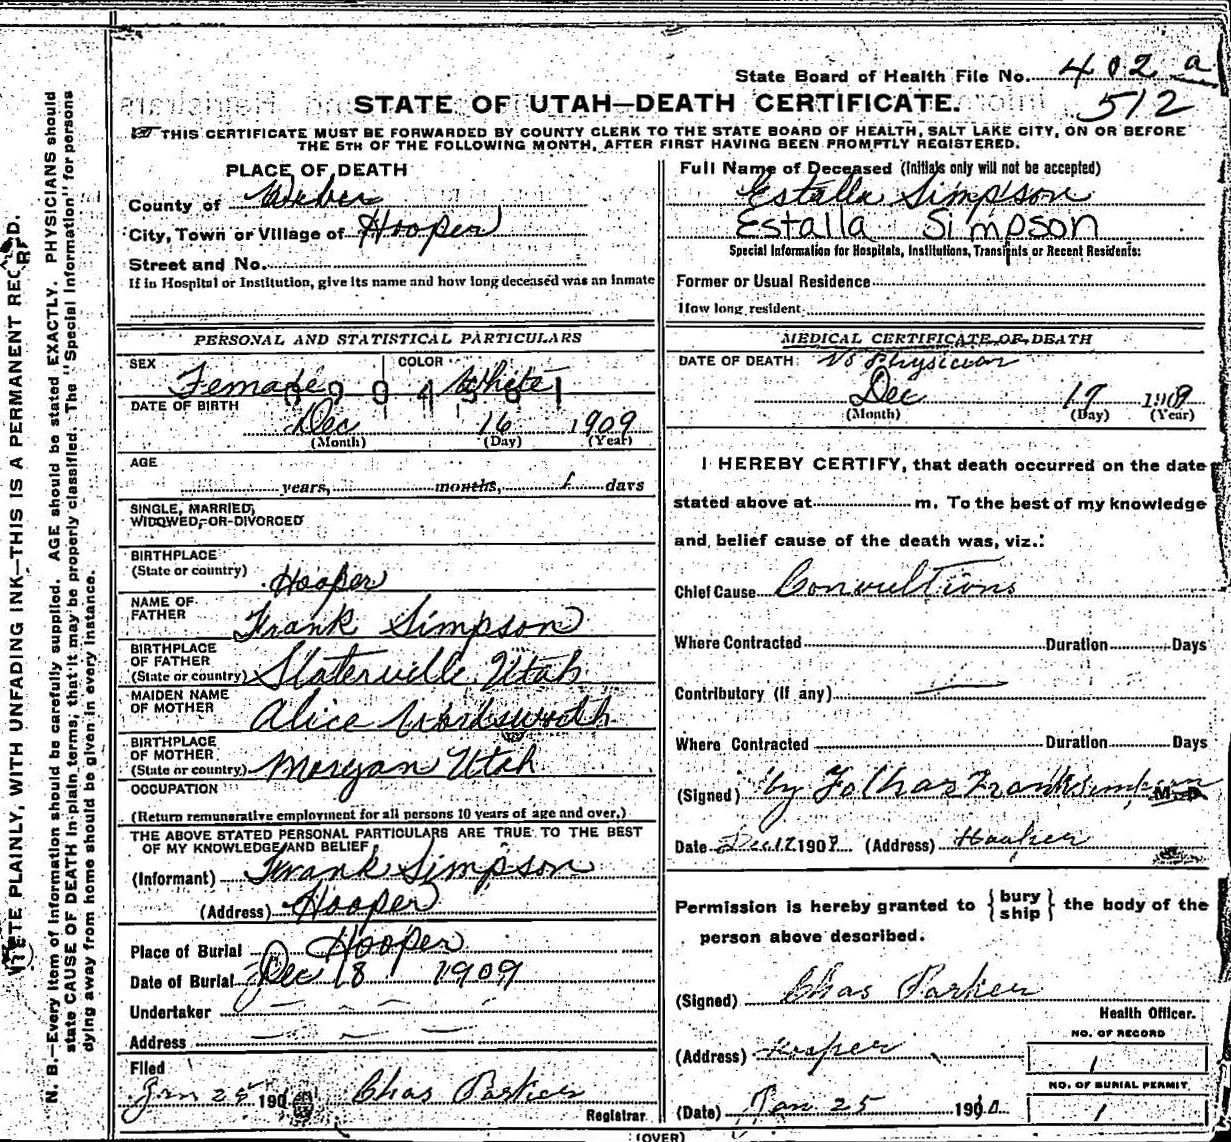 State Board of Health File No. 402 a
512
STATE OF UTAH—DEATH CERTIFICATE.
THIS CERTIFICATE MUST BE FORWARDED BY COUNTY CLERK TO THE STATE BOARD OF HEALTH, SALT LAKE CITY, ON OR BEFORE
THE 5TH OF THE FOLLOWING MONTH, AFTER FIRST HAVING BEEN PROMPTLY REGISTERED.
PLACE OF DEATH
County of Weber
City, Town or Village of Hooper
Street and No.
If in Hospital or Institution, give its name and how long deceased was an inmate
PERSONAL AND STATISTICAL PARTICULARS
SEX Female COLOR White
0904501
DATE OF BIRTH
Dec 16 1909
(Month) (Day) (Year)
AGE
years, months, 1 days
SINGLE, MARRIED,
WIDOWED, OR DIVORCED
BIRTHPLACE
(State or country) Hooper
NAME OF
FATHER Frank Simpson
BIRTHPLACE
OF FATHER
(State or country) Slaterville Utah
MAIDEN NAME
OF MOTHER Alice Wordsworth
BIRTHPLACE
OF MOTHER
(State or country) Morgan Utah
OCCUPATION
(Return remunerative employment for all persons 10 years of age and over.)
THE ABOVE STATED PERSONAL PARTICULARS ARE TRUE TO THE BEST
OF MY KNOWLEDGE AND BELIEF
(Informant) Frank Simpson
(Address) Hooper
Place of Burial Hooper
Date of Burial Dec 18 1909
Undertaker
Address
Filed
Jan 25 190 Chas Parker
Registrar
Full Name of Deceased (Initials only will not be accepted)
Estalla Simpson
Estalla Simpson
Special Information for Hospitals, Institutions, Transients or Recent Residents:
Former or Usual Residence
How long resident
MEDICAL CERTIFICATE OF DEATH
DATE OF DEATH: No Physician
Dec 17 1909
(Month) (Day) (Year)
I HEREBY CERTIFY, that death occurred on the date
stated above at m. To the best of my knowledge
and belief cause of the death was, viz.:
Chief Cause Convultions
Where Contracted Duration Days
Contributory (if any)
Where Contracted Duration Days
(Signed) by Frank Simpson M. D.
Date Dec 17 1909 (Address) Hooper
Permission is hereby granted to {bury ship} the body of the
person above described.
(Signed) Chas Parker
Health Officer.
(Address) Hooper
NO. OF RECORD
1
(Date) Jan 25 1900
NO. OF BURIAL PERMIT
1
(OVER)
WRITE PLAINLY, WITH UNFADING INK—THIS IS A PERMANENT RECORD.
N. B.—Every item of information should be carefully supplied. AGE should be stated EXACTLY. PHYSICIANS should
state CAUSE OF DEATH in plain terms, that it may be properly classified. The "Special Information" for persons
dying away from home should be given in every instance.